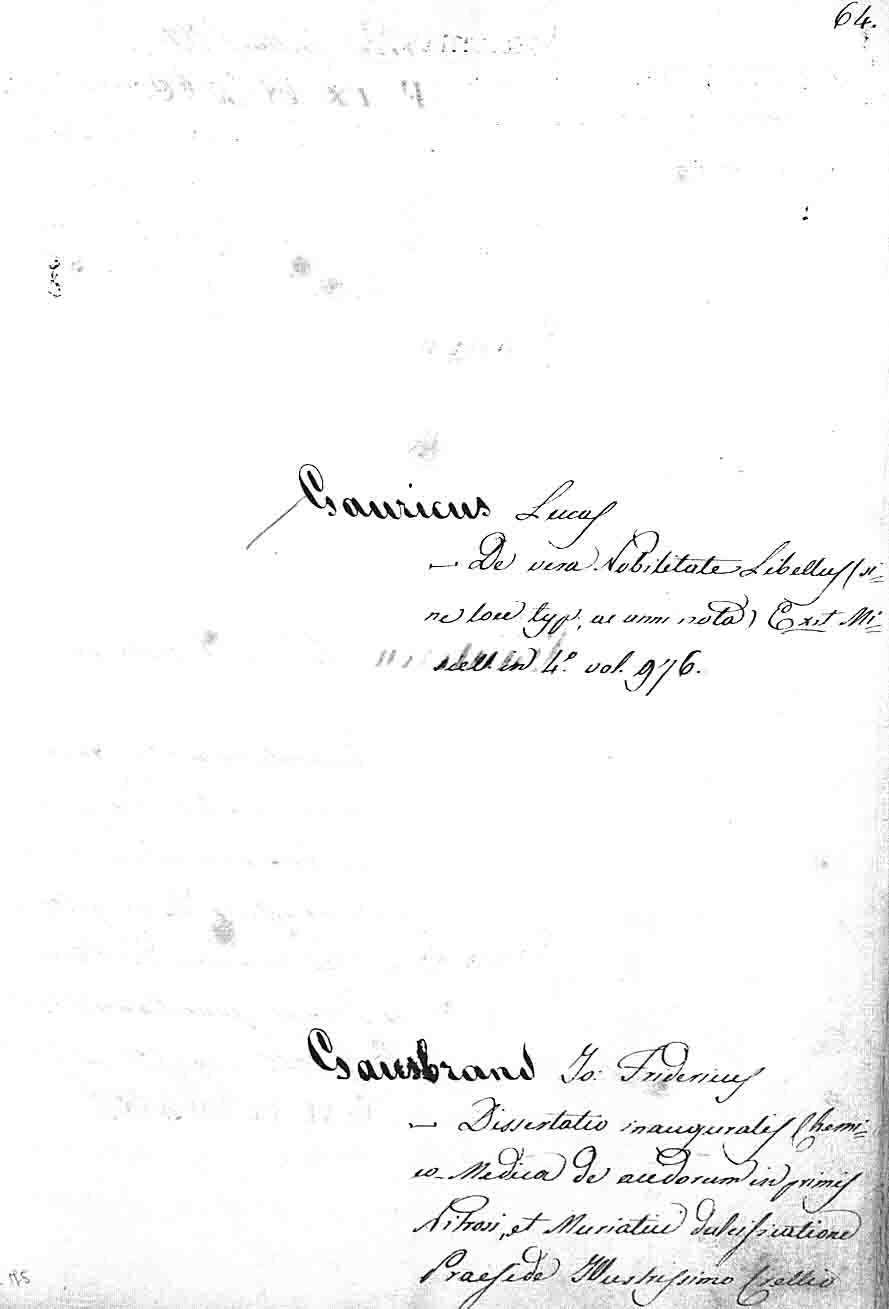 64.
Gauricus Lucas
— De vera Nobilitate Libellus (si=
ne loco typ, ac anni nota) Exit Mi=
scell. in 4º vol. 976.
Gausbrand Jo: Fridericus
— Dissertatio inauguralis Chemi=
co-Medica de acidorum in primis
Nitrosi, et Muriatici dulcificatione
Praeside Illustrissimo Crellio